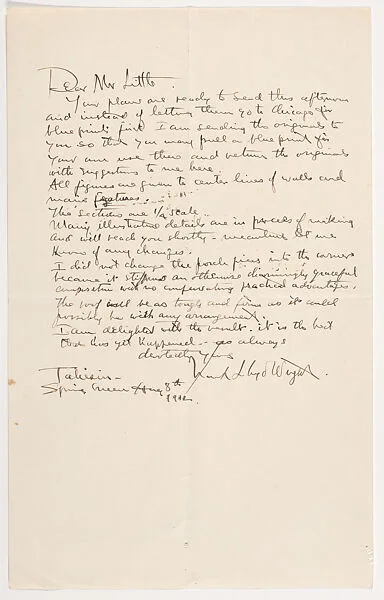 Dear Mr Little.
Your plans are ready to send this afternoon
and instead of letting them go to Chicago for
blueprints first I am sending the originals to
you so that you may pull a blueprint for
your own use there and return the originals
with suggestions to me here.
All figures are given to center lines of walls and
main features.
The sections are 1/2 scale.
Many illustrative details are in process of making
and will reach you shortly - meanwhile let me
know of any changes.
I did not change the porch piers into the corners
because it stiffened an otherwise charmingly graceful
composition with no compensating practical advantages.
The roof will be as tough and firm as it could
possibly be with any arrangement.
I am delighted with the result. it is the best
that has yet happened -- as always
devotedly yours
Frank Lloyd Wright.
Taliesin -
Spring Green Aug 8th
1912.